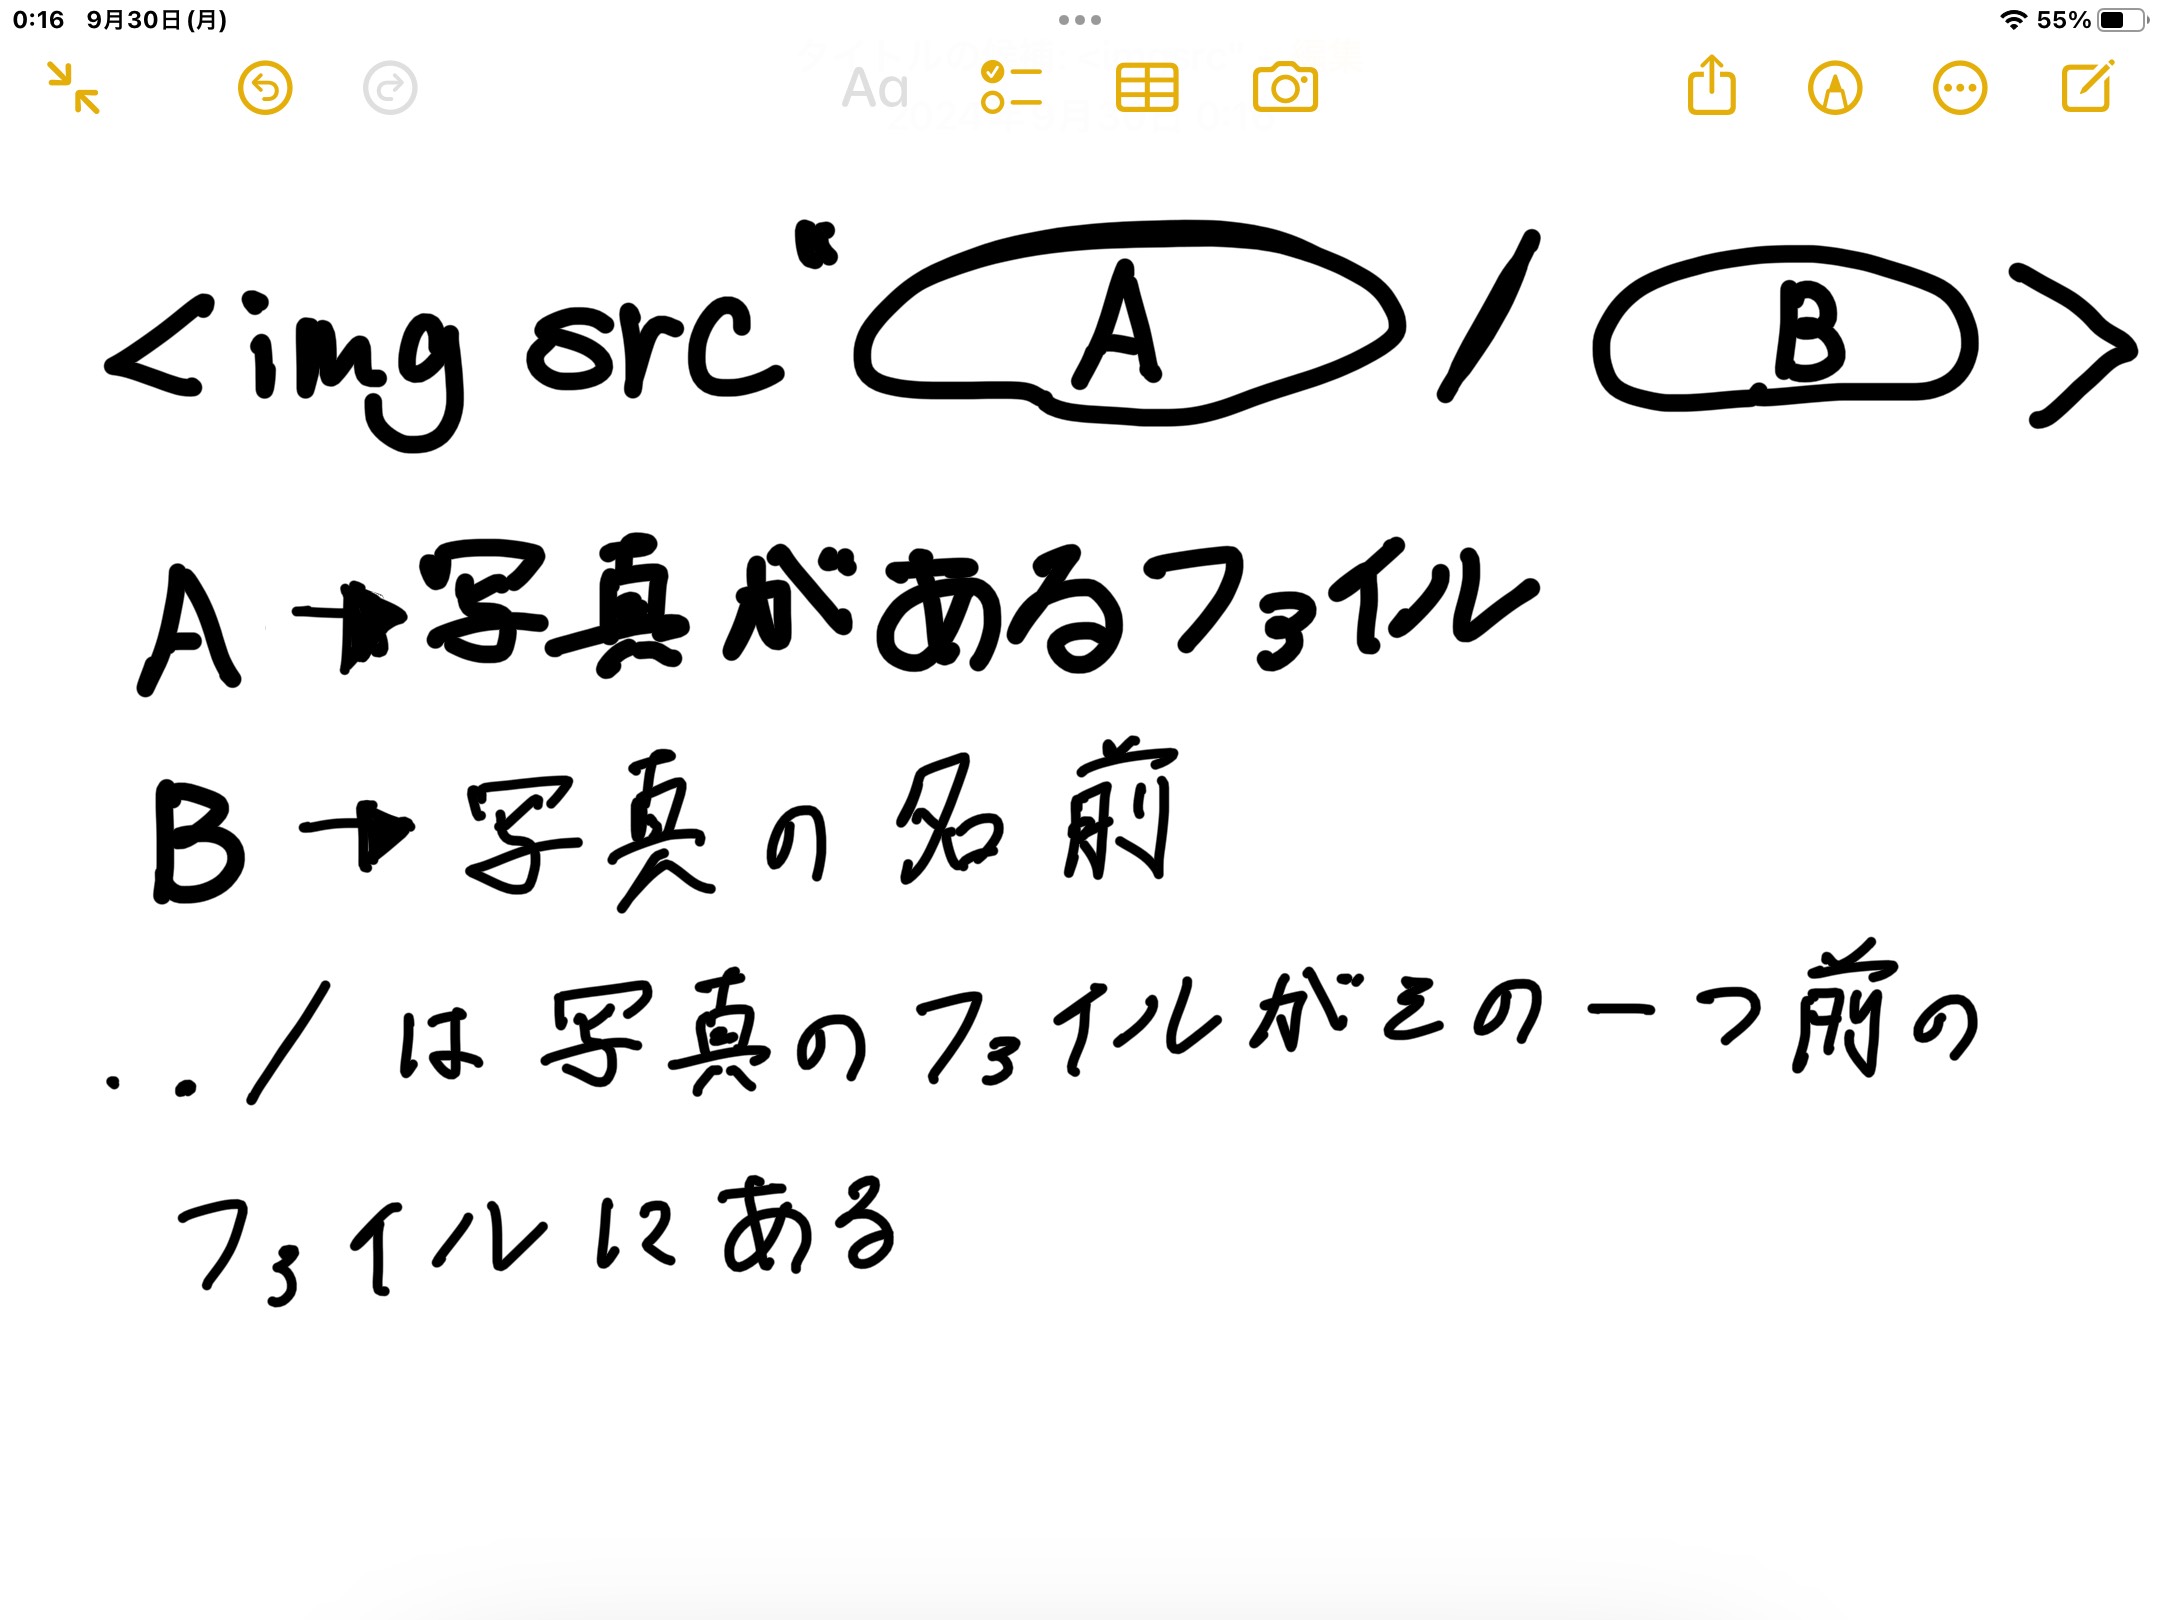 0:16 9月30日(月) 55%
Aa
<img src" A / B >
A→写真があるファイル
B→写真の名前
../は写真のファイルがその一つ前の
ファイルにある